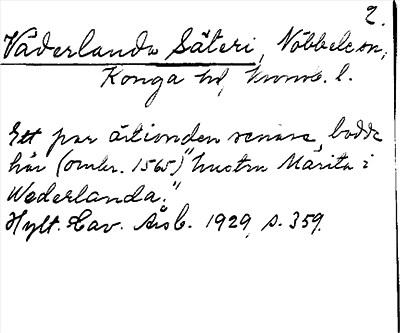 2.
Väderlanda Säteri, Nöbbele sn,
Konga hd, Kronob. l.
Ett par årtionden senare, bodde
här (omkr. 1565) "hustru Märita i
Wederlanda."
Hylt.-Cav. Årsb. 1929, s. 359.